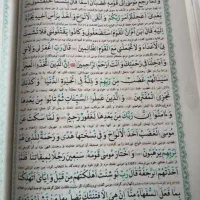 وَلَمَّا رَجَعَ مُوسَىٰ إِلَىٰ قَوْمِهِ غَضْبَانَ أَسِفًا قَالَ بِئْسَمَا خَلَفْتُمُونِي
بَعْدِي أَعَجِلْتُمْ أَمْرَ رَبِّكُمْ وَأَلْقَى الْأَلْوَاحَ وَأَخَذَ بِرَأْسِ أَخِيهِ يَجُرُّهُ
إِلَيْهِ قَالَ ابْنَ أُمَّ إِنَّ الْقَوْمَ اسْتَضْعَفُونِي وَكَادُوا يَقْتُلُونَنِي فَلَا تُشْمِتْ
بِيَ الْأَعْدَاءَ وَلَا تَجْعَلْنِي مَعَ الْقَوْمِ الظَّالِمِينَ قَالَ رَبِّ اغْفِرْ لِي وَلِأَخِي
وَأَدْخِلْنَا فِي رَحْمَتِكَ وَأَنْتَ أَرْحَمُ الرَّاحِمِينَ إِنَّ الَّذِينَ اتَّخَذُوا الْعِجْلَ
سَيَنَالُهُمْ غَضَبٌ مِنْ رَبِّهِمْ وَذِلَّةٌ فِي الْحَيَاةِ الدُّنْيَا وَكَذَٰلِكَ نَجْزِي
الْمُفْتَرِينَ وَالَّذِينَ عَمِلُوا السَّيِّئَاتِ ثُمَّ تَابُوا مِنْ بَعْدِهَا
وَآمَنُوا إِنَّ رَبَّكَ مِنْ بَعْدِهَا لَغَفُورٌ رَحِيمٌ وَلَمَّا سَكَتَ عَنْ
مُوسَى الْغَضَبُ أَخَذَ الْأَلْوَاحَ وَفِي نُسْخَتِهَا هُدًى وَرَحْمَةٌ لِلَّذِينَ هُمْ
لِرَبِّهِمْ يَرْهَبُونَ وَاخْتَارَ مُوسَىٰ قَوْمَهُ سَبْعِينَ رَجُلًا لِمِيقَاتِنَا فَلَمَّا
أَخَذَتْهُمُ الرَّجْفَةُ قَالَ رَبِّ لَوْ شِئْتَ أَهْلَكْتَهُمْ مِنْ قَبْلُ وَإِيَّايَ أَتُهْلِكُنَا
بِمَا فَعَلَ السُّفَهَاءُ مِنَّا إِنْ هِيَ إِلَّا فِتْنَتُكَ تُضِلُّ بِهَا